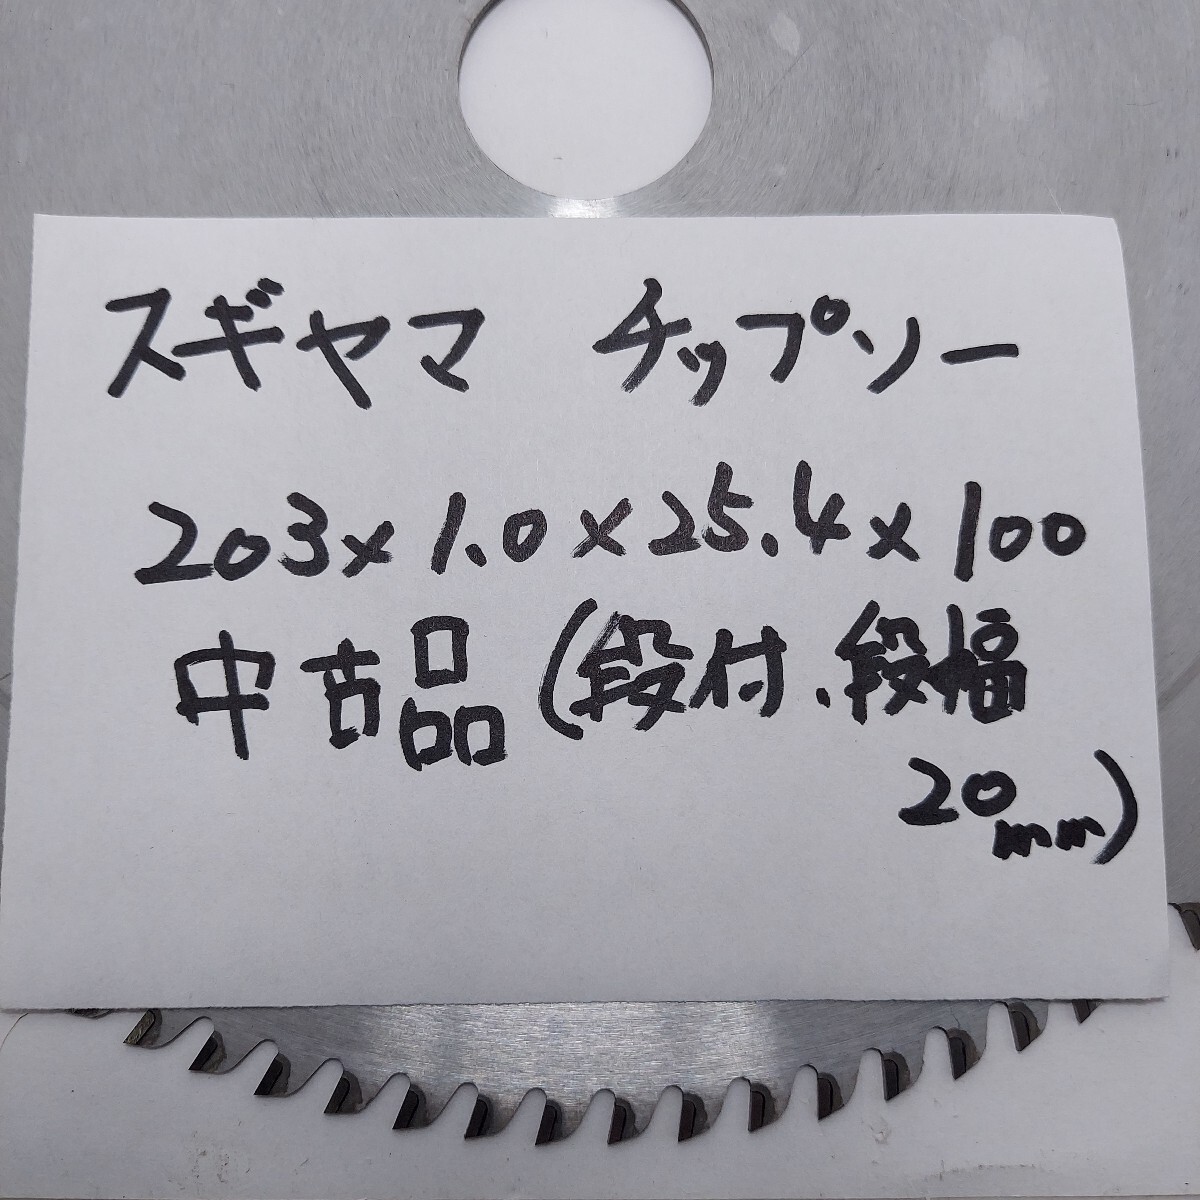 スギヤマ チップソー
203×1.0×25.4×100
中古品(段付、段幅
20mm)